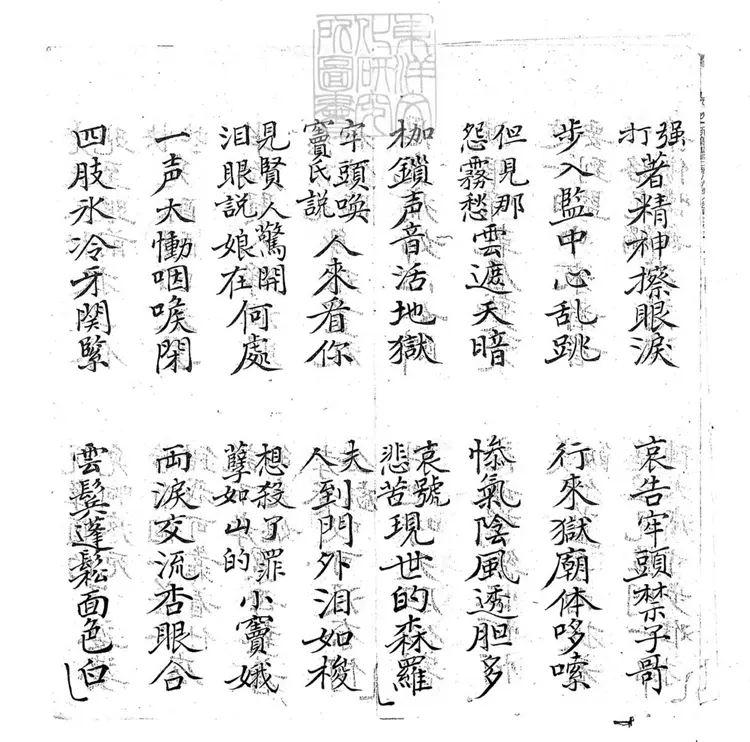 东洋文化研究所圖書
强打著精神擦眼淚
哀告牢頭禁子哥
步入監中心乱跳
行來獄廟体哆嗦
但見那怨霧愁雲遮天暗
惨氣陰風透胆多
枷鎖声音活地獄
哀號悲苦現世的森羅
牢頭喚竇氏説人來看你
夫人到門外泪如梭
見賢人驚開泪眼説娘在何處
想殺了罪孽如山的小竇娥
一声大慟咽喉閉
両淚交流杏眼合
四肢氷冷牙関緊
雲鬂蓬鬆面色白